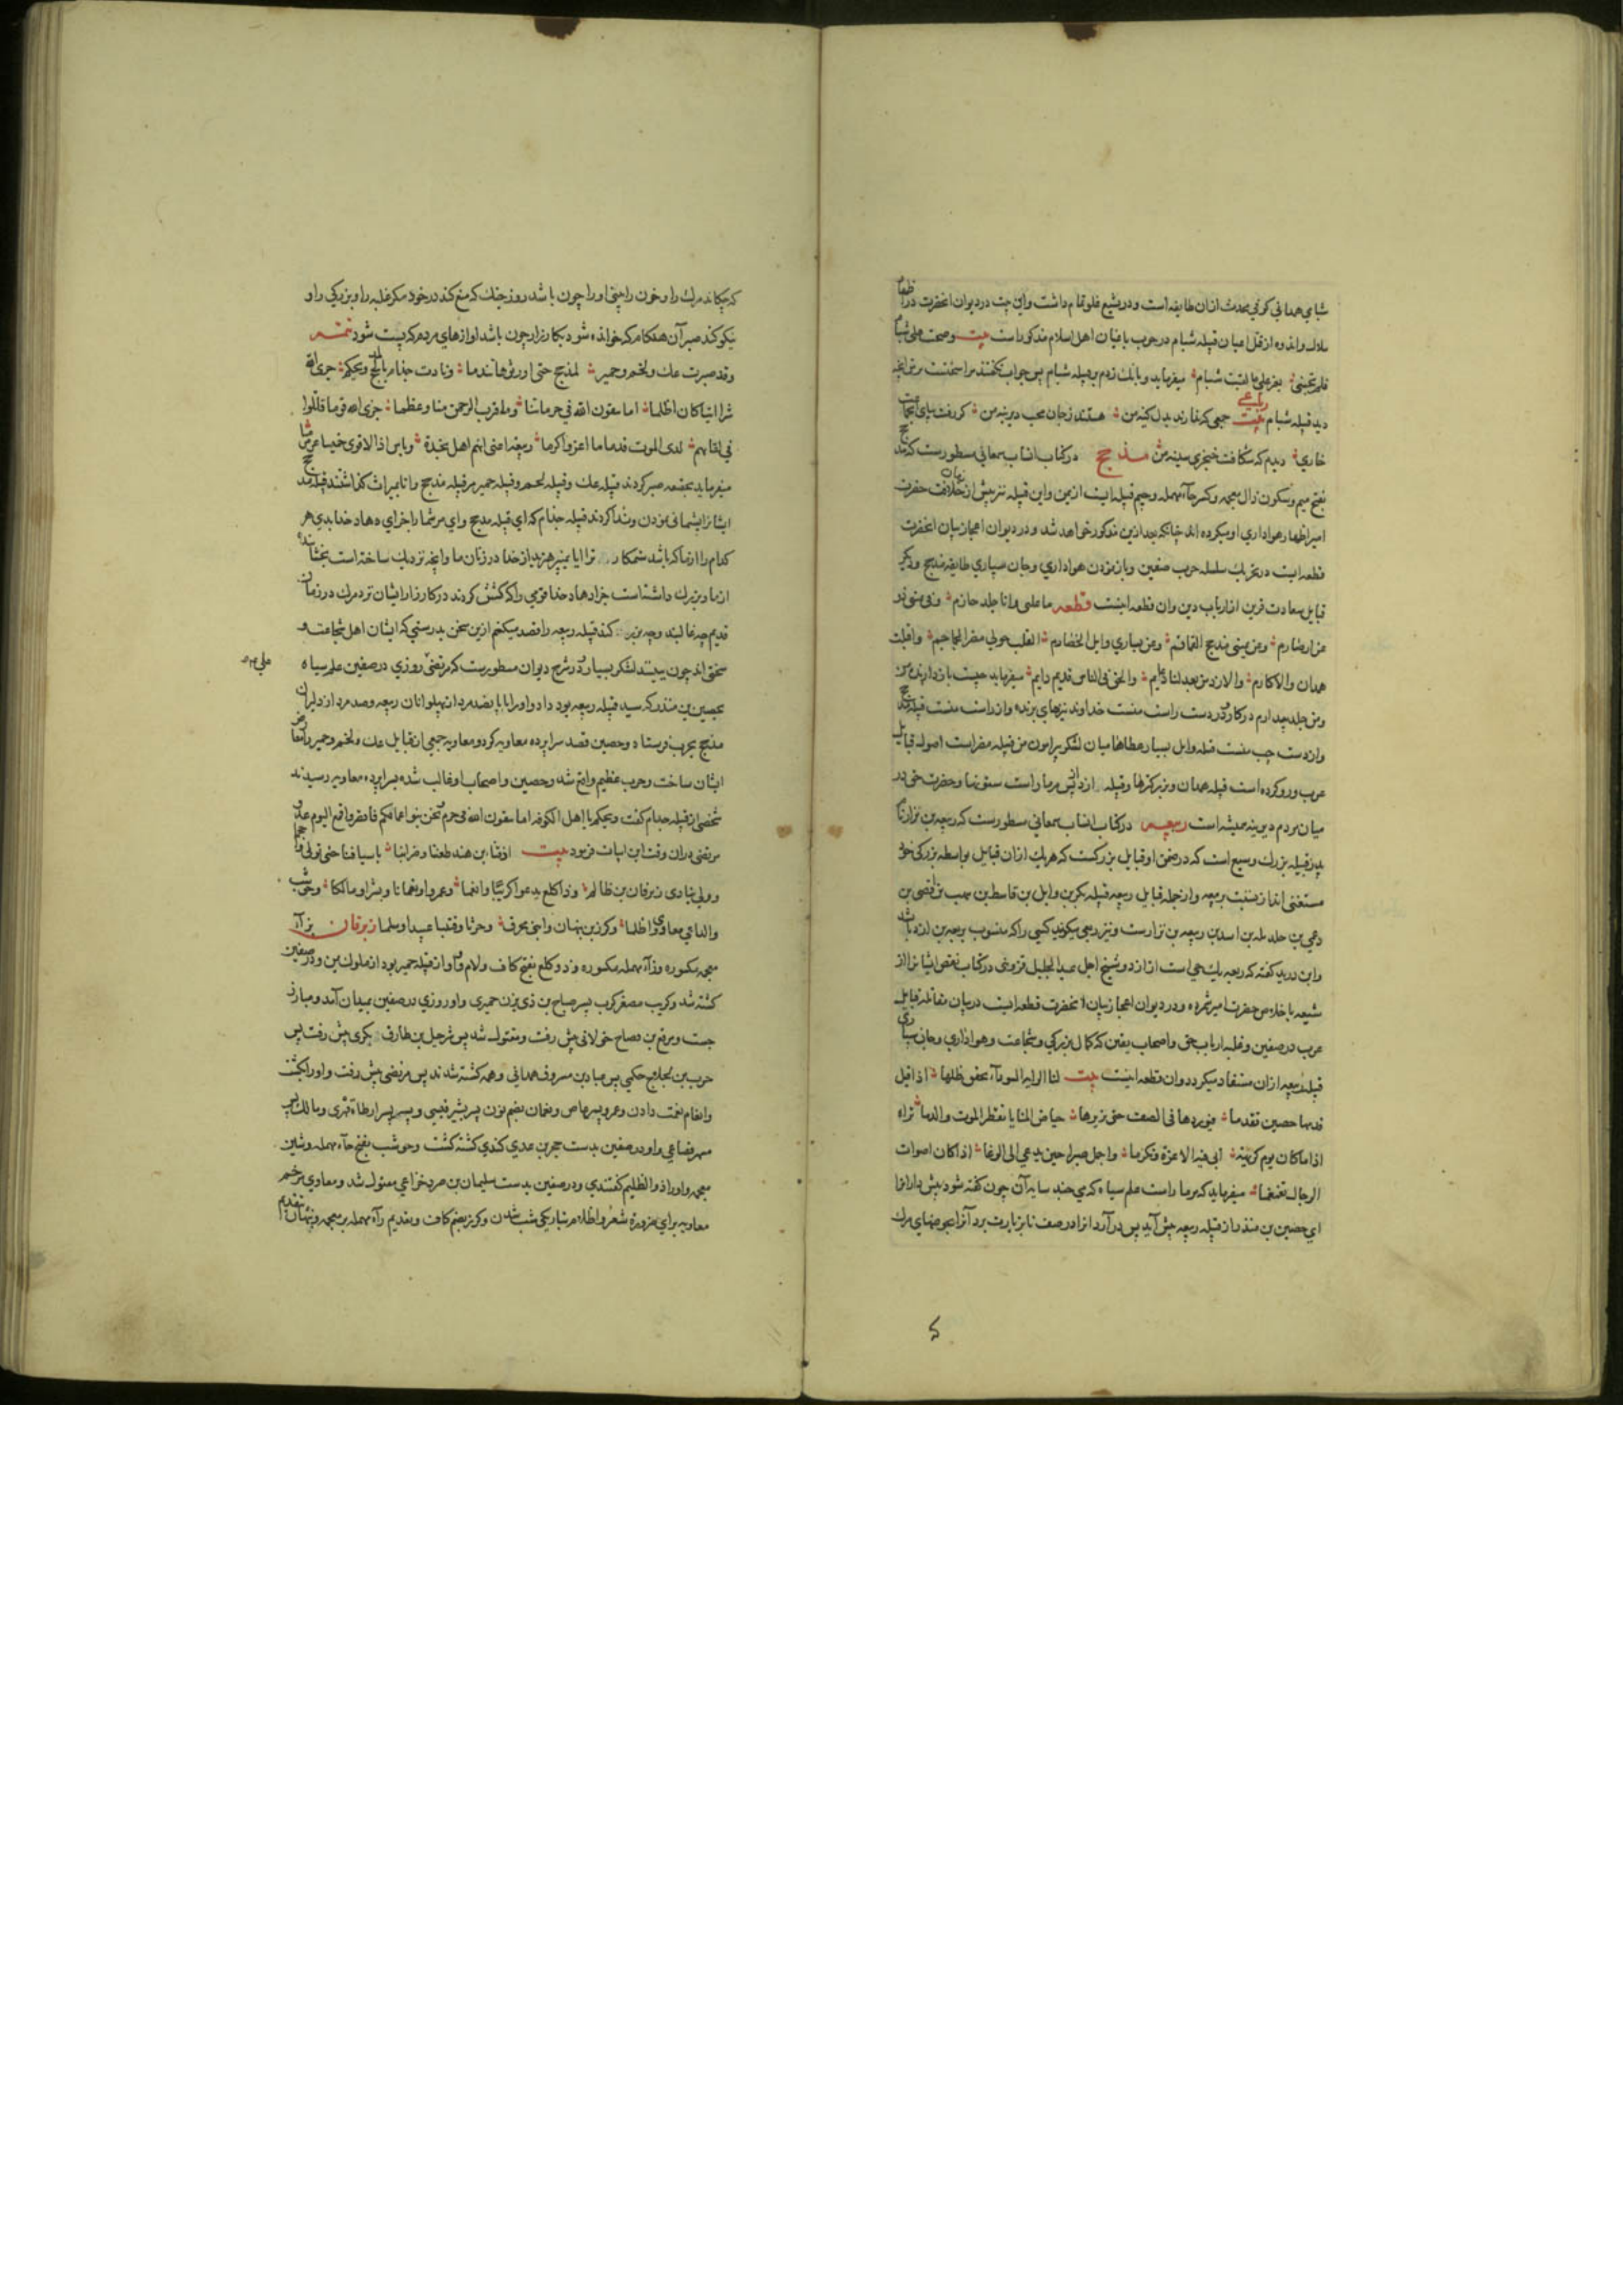 شبامی همدانی کوفی محدث ازان طایفه است و در تشیع غلو تمام داشت واین بیت در دیوان انحضرت در اظهار
ملال واندوه از قتل اعیان قبیله شبام در حرب باغیان اهل اسلام مذکور است بیت وصحت علی شبام
فلم تجبنی یعز علی ما لقیت شبام میفرماید و بانک زدم بر قبیله شبام پس جواب نکفتند مرا سخنت بر من انچه
دید قبیله شبام رباعی جمعی که ندارند بدل کینه من هستند ز جان محب دیرینه من کر رفت بپای
خاری دیدم که شکافت خنجری سینه من مذحج در کتاب انساب سمعانی مسطورست که مذحج
بفتح میم وسکون ذال معجمه وکسر حاء مهمله وجیم قبیله ایست از یمن واین قبیله نیز پیش از زمان خلافت حضرت
امیر اظهار هواداری او میکرده اند چنانکه بعد ازین مذکور خواهد شد و در دیوان اعجاز بیان انحضرت
قطعه ایست در تحریک سلسله حرب صفین و باز نمودن هواداری وجان سپاری طایفه مذحج ودیکر
قبایل سعادت قرین از ارباب دین وان قطعه اینست قطعه ما علتی وانا جلد حازم وفی یمینی ذو
غرار صارم وعن یمینی مذحج القماقم وعن یساری وایل الخضارم القلب حولی مضر الجماجم واقبلت
همدان والاکارم والازد من بعد لنا دعایم والحق فی الناس قدیم دایم میفرماید چیست باز دارنده من
ومن جلد بیدارم در کار ودر دست راست منست خداوند تیزیهای برنده واز راست منست قبیله مذحج
واز دست چپ منست قبیله وایل بسیار عطاها میان لشکر پیرامون من قبیله مضر است اصول قبایل
عرب ورو کرده است قبیله همدان وبزرکترها وقبیله ازد از پس مر ما راست ستونها وحضرت حق در
میان مردم دیرینه همیشه است ربیعه در کتاب انساب سمعانی مسطورست که ربیعه بن نزار نام
پدر قبیله بزرک وسیع است که در ضمن او قبایل بزرکست که هریک ازان قبایل بواسطه بزرکی خود
مستغنی اند از نسبت بربیعه واز جمله قبایل ربیعه قبیله بکر بن وایل بن قاسط بن هنب بن افصی بن
دعمی بن جدیله بن اسد بن ربیعه بن نزارست ونیز ربعی میکویند کسی را که منسوب بربیعه بن ازد باشد
وابن درید کفته که ربعه یک حی است از ازد وشیخ اجل عبد الجلیل قزوینی در کتاب نقض ایشانرا از
شیعه با خلاص حضرت امیر شمرده و در دیوان اعجاز بیان انحضرت قطعه ایست در بیان مقاتله قبایل
عرب در صفین وغلبه ارباب حق واصحاب یقین که کمال بزرکی وشجاعت وهواداری وجان سپاری
قبیله ربیعه ازان مستفاد میکردد وان قطعه اینست بیت لنا الرایه السوداء یخفق ظلها اذا قیل
قدمها حصین تقدما فیوردها فی الصف حتی یزیرها حیاض المنایا تقطر الموت والدما تراه
اذا ما کان یوم کریهة ابی فیه الا عزة وتکرما واجمل صبرا حین یدعی الی الوغا اذا کان اصوات
الرجال تغمغما میفرماید که مر ما راست علم سیاه که می جنبد سایه آن چون کفته شود پیش دار انرا
ای حصین بن منذر از قبیله ربیعه پیش آید پس در آرد انرا در صف تا بزیارت برد آنرا بحوضهای مرک
که چکاند مرک را وخون را بینی او را چون باشد روز جنک که منع کند در خود مکر غلبه را وبزرکی را و
نیکو کند صبر آن هنکام که خوانده شود بکارزار چون باشد اوازهای مردم که پست شود تتمه
وقد صبرت عک ولخم وحمیر لمذحج حتی اورثوها تندما ونادت جذام یال مذحج ویحکم جزی الله
شرا اینا کان اظلما اما تتقون الله فی حرماتنا وما قرب الرحمن منا وعظما جزی الله قوما قاتلوا
فی لقائهم لدی الموت قدما ما اعز واکرما ربیعه اعنی انهم اهل نجدة وباس اذا لاقوی خمیسا عرمرما
میفرماید بحقیقه صبر کردند قبیله عک وقبیله لخم وقبیله حمیر مر قبیله مذحج را تا بمیراث کذاشتند قبیله مذحج
ایشانرا پشیمانی نمودن وندا کردند قبیله جذام که ای قبیله مذحج وای مر شما را جزای دهاد خدا بدی هر
کدام را از ما که باشد ستمکار تر ایا نمیپرهیزید از خدا در زنان ما وانچه نزدیک ساخته است بخشاینده
از ما وبزرک داشته است جزا دهاد خدا قومی را که کشش کردند در کارزار ایشان نزد مرک در زمان
قدیم چه غالبند وچه بزرک کند قبیله ربیعه را قصد میکنم ازین سخن بدرستی که ایشان اهل شجاعت و
سختی اند چون ببینند لشکر بسیار ودر شرح دیوان مسطورست که مرتضی علی روزی در صفین علم سیاه
بحصین بن منذر که سید قبیله ربیعه بود داد واو را با پانصد مرد از پهلوانان ربیعه وصد مرد از دلیران
مذحج بحرب فرستاد وحصین قصد سراپرده معاویه کرد ومعاویه جمعی از قبایل عک ولخم وحمیر را معارض
ایشان ساخت وحرب عظیم واقع شد وحصین واصحاب او غالب شده بسراپرده معاویه رسیدند
شخصی از قبیله جذام کفت ویحکم یا اهل الکوفه اما تتقون الله فی حرم نحن بنو اعمامکم
مرتضی دران وقت این ابیات فرمود بیت اذقنا ابن هند طعننا وضرابنا باسیافنا حتی تولی واحجما
وولی ینادی زبرقان بن ظالم وذا کلع یدعو کریبا وانعما وعمرا ونعمانا وبسرا ومالکا وحوشب
والداعی معاوی واظلما وکرز بن نبهان وابنی محرق وحرثا وقینیا عبیدا وسلما زبرقان بزاء
معجمه مکسوره وراء مهمله مکسوره وذو کلع بفتح کاف ولام واو از قبیله حمیر بود از ملوک یمن ودر صفین
کشته شد وکریب مصغر کرب پسر صباح بن ذی یزن حمیری واو روزی در صفین بمیدان آمد ومبارز
جست ومرقع بن وضاح خولانی پیش رفت ومقتول شد پس شرحیل بن طارق بکری پیش رفت پس
حرب بن لجلاج حکمی پس عباد بن مسروف همدانی وهمه کشته شدند پس مرتضی پیش رفت واو را بکشت
وانعام نعمت دادن وعمرو پسر عاص ونعمان بضم نون پسر بشیر قیسی وبسر پسر ارطاة فهری ومالک پسر
مسهر قضاعی واو در صفین بدست حجر بن عدی کندی کشته کشت وحوشب بفتح حاء مهمله وشین
معجمه واو را ذو الظلیم کفتندی ودر صفین بدست سلیمان بن صرد خزاعی مقتول شد ومعاوی مرخم
معاویه برای ضرورة شعر واظلام بتاریکی شب شدن وکرز بضم کاف وتقدیم راء مهمله بر معجمه ونبهان بتقدیم